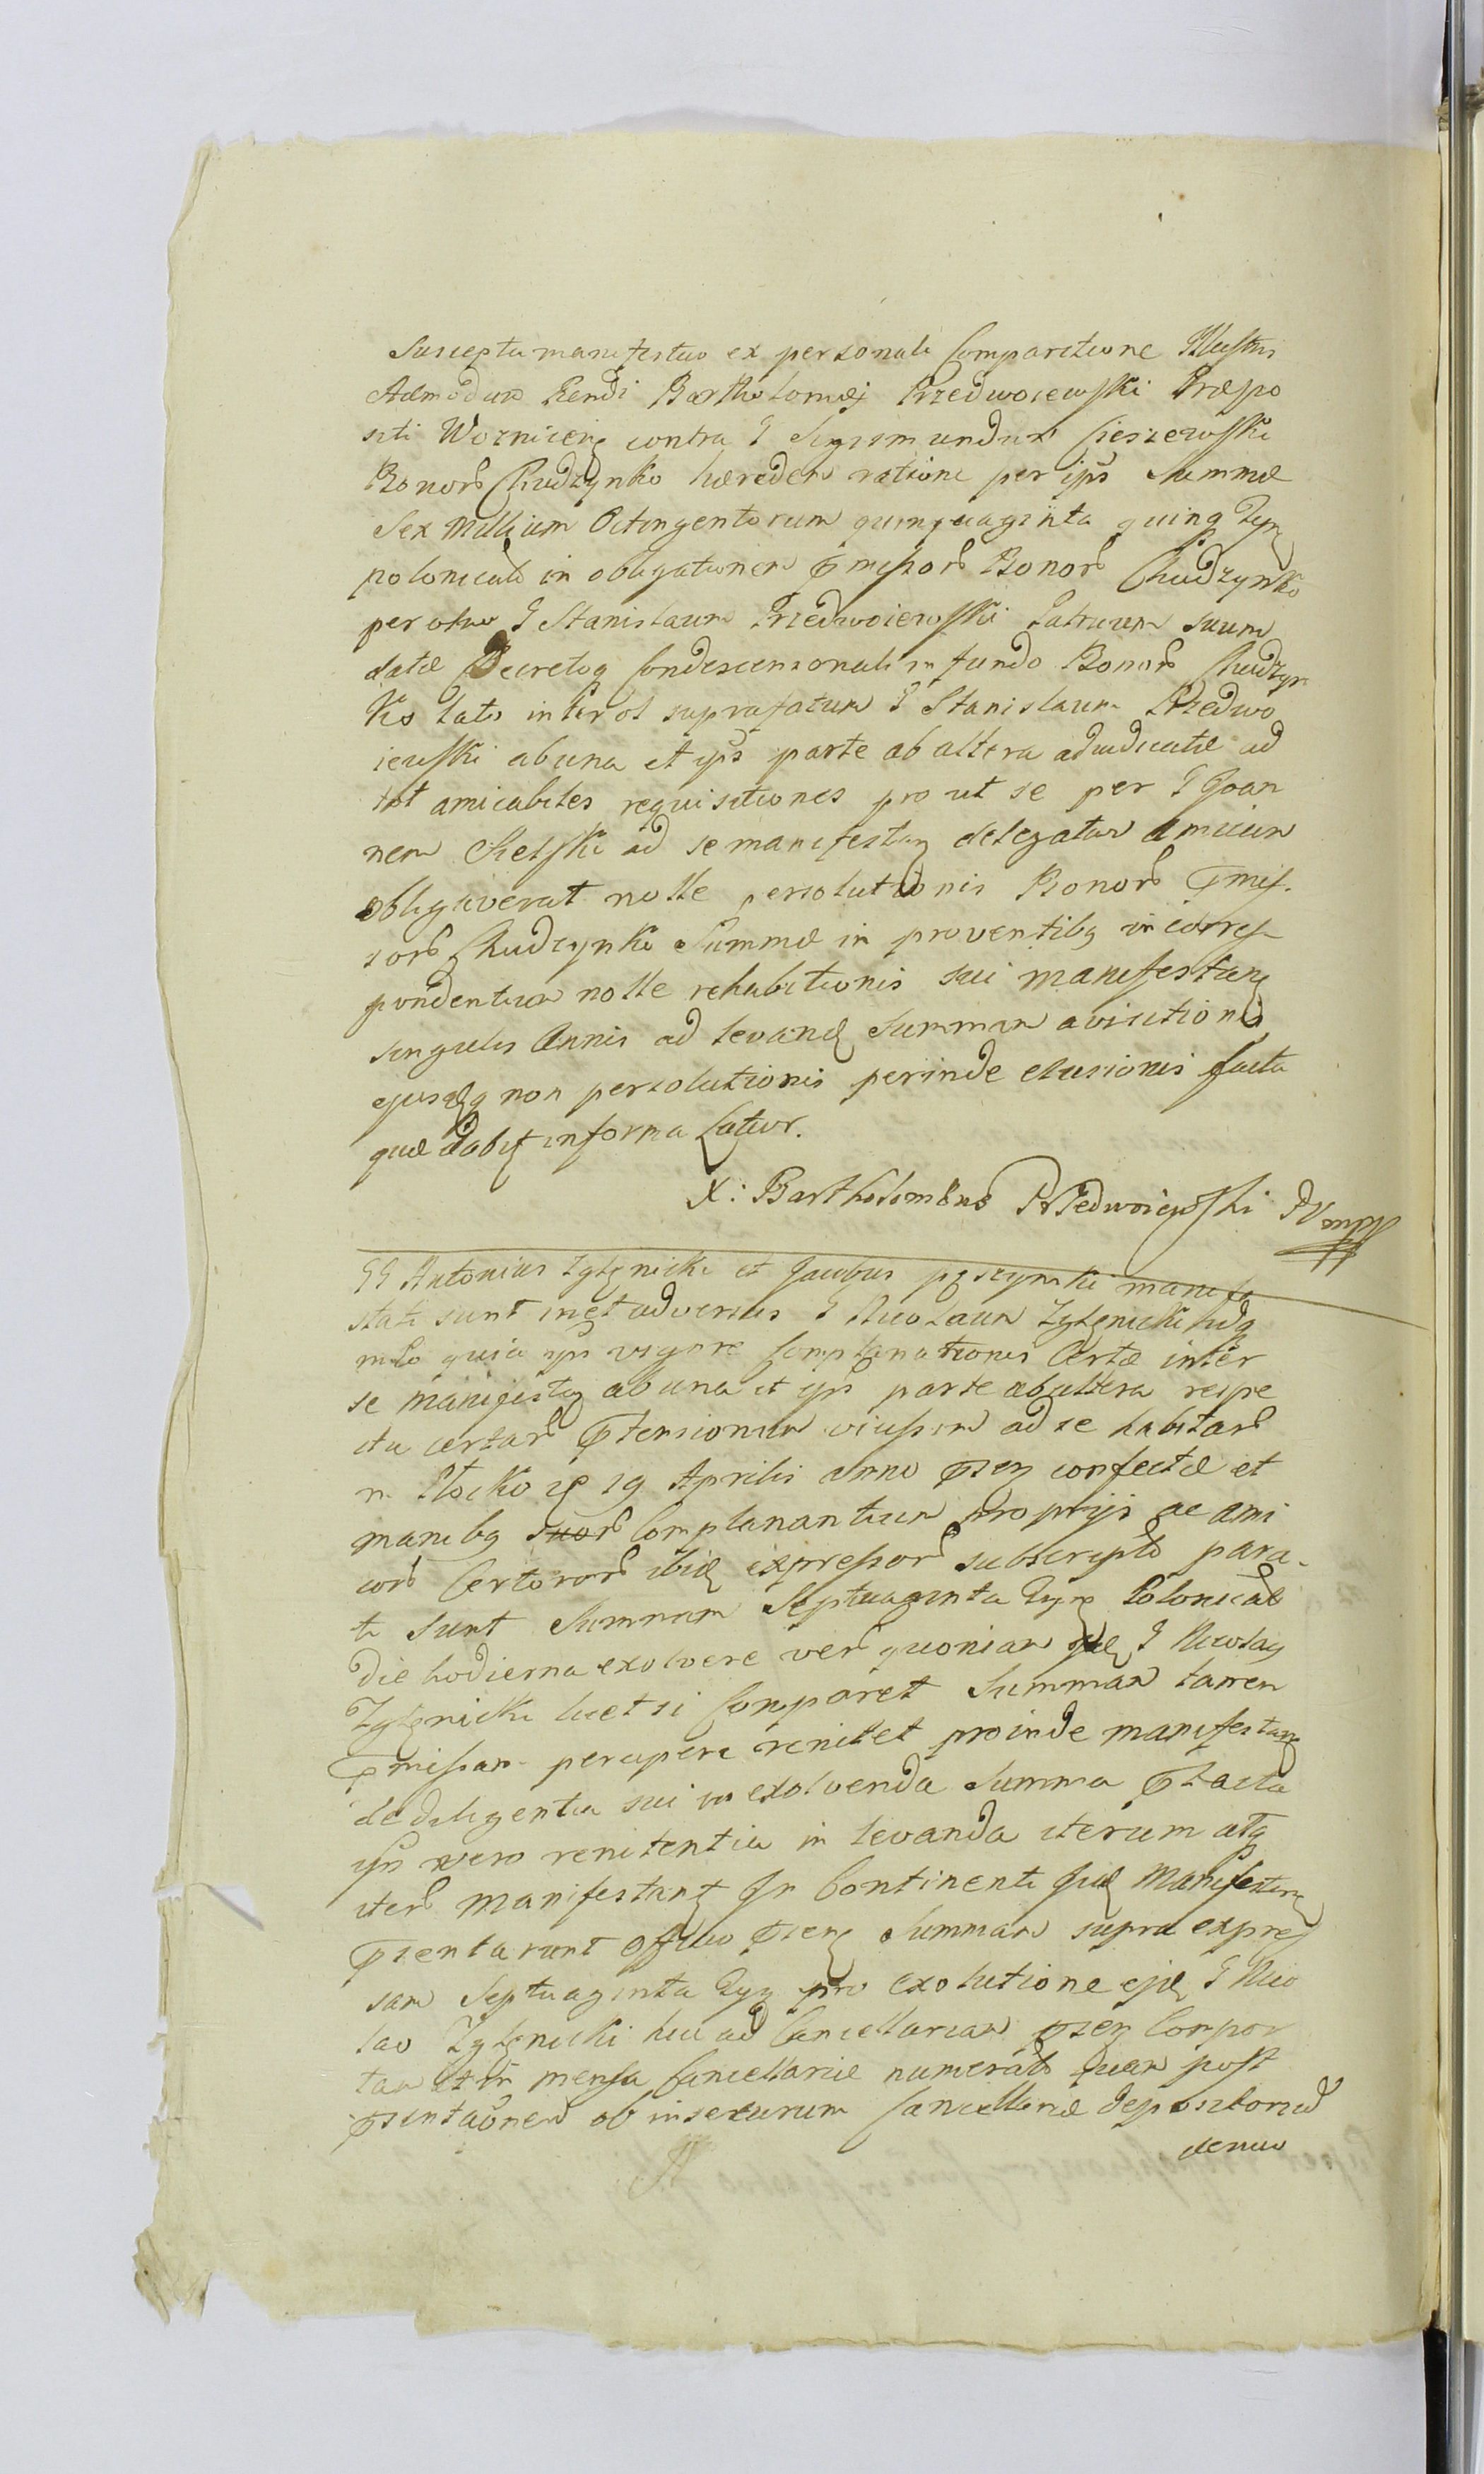 Suscepta manifestao ex personali Comparitione Illustris
Admodum Rendi Bartholomæi Przedwoiewski Præpo
siti Woznicen contra G Sigismundum Cieszewski
Bonor Chudzynko hæredem ratione per ips Summæ
Sex Millium Octingentorum quinquaginta quinq
polonicali in obligationem pmissor Bonor Chudzynko
per olim G Stanislaum Przedwoiewski Patruum suum
datæ Decretoq Condescensionali in fundo Bonor Chudzyn
ko lato inter ol suprafatum G Stanislaum Przedwo
iewski ab una et ips parte ab altera adiudicatæ ad
tot amicabiles requisitiones pro ut se per G Joan
nem ad se manifestan delegatum amicum
obligaverat nolle persolutionis Bonor pmis
sor Chudzynko Summæ in proventibq in corres
pondentiam nolle rehabitionis sui manifestan
singulis Annis ad levand Summam
ejusdq non persolutionis perinde elusionis facta
quæ dabit in forma Latior.
X: Bartholomeus Przedwoiewski mpp
GG Antonius Zglenicki et Jacobus manife
stati sunt in et adversus G Nicolaum Zglenicki
mlo quia ips vigore Complanationis Certæ inter
se manifestan ab una et ips parte ab altera respe
ctu certar ptensionum vicissim ad se habitar
in Plocko 19 Aprilis anno psen confectæ et
manibq suor Complanantium proprijs ac ami
cor Certoror ibid expressor subscriptæ para
ti sunt Summam Septuaginta Polonical
die hodierna exolvere ver quoniam G Nicolaq
Zglenicki licet si Comparet Summam tamen
pmissam percipere renitet proinde manifestan
de diligentia sui in exolvenda Summa ptacta
ips vero renitentia in levanda iterum atq
iter manifestant In Continenti Iid Manifestan
psentarunt offcio psen Summam supra expres
sam Septuaginta pro exolutione ejd G Nico
lao Zglenicki huc ad Cancellariam psen Compor
tam et in mensa Cancellariæ numerat quam post
psentaonem ob insecurum Cancellariæ depositorium
denuo